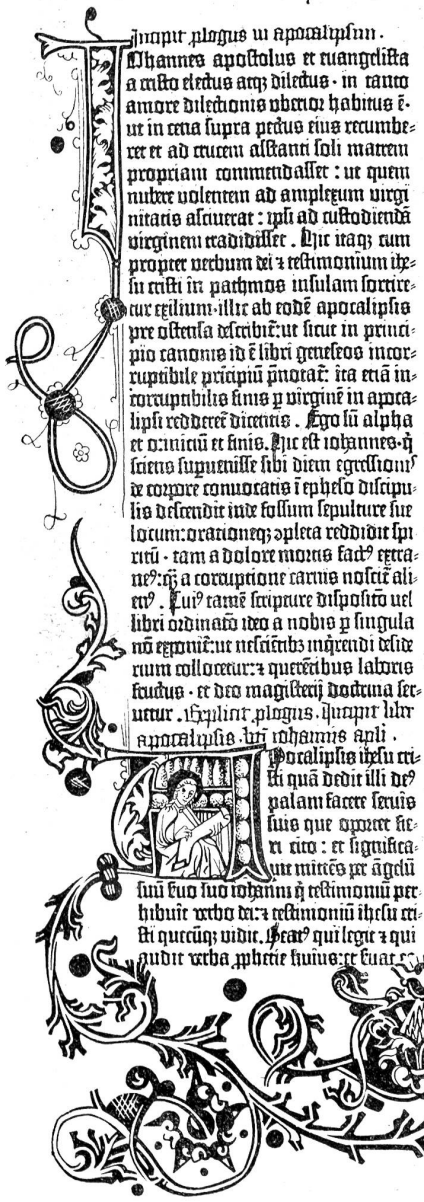 Incipit ꝓlogus in apocalipsim.
Iohannes apostolus et euangelista
a cristo electus atqꝫ dilectus · in tanto
amore dilectionis uberior habitus ē·
ut in cena supra pectus eius recumbe-
ret et ad crucem astanti soli matrem
propriam commendasset : ut quem
nubere volentem ad amplexum virgi
nitatis asciuerat : ipsi ad custodiendā
virginem tradidisset . Hic itaqꝫ cum
propter verbum dei ⁊ testimonium ihe-
su cristi in pathmos insulam sortire-
tur exilium · illic ab eodē apocalipsis
pre ostensa describit᷑: ut sicut in princi-
pio canonis id ē libri geneseos incor-
ruptibile prīcipiū p̄notat᷑: ita etiā in-
corruptibilis finis ꝑ virginē in apoca-
lipsi redderet᷑ dicentis . Ego sū alpha
et o: iniciū et finis. Hic est iohannes · q̄
sciens supuenisse sibi diem egressionis
de corpore conuocatis ī epheso discipu-
lis descendit inde fossum sepulture sue
locum: orationeqꝫ ↄpleta reddidit spi
ritū · tam a dolore mortis factꝰ extra-
neꝰ: qȝ a corruptione carnis noscit᷑ ali-
enꝰ . Cuiꝰ tamē scripture dispositō vel
libri ordinatō ideo a nobis ꝑ singula
nō exponit᷑: ut nescientibꝫ inq̄rendi deside
rium collocetur: ⁊ querētibus laboris
fructus · et deo magisterij doctrina ser-
uetur . Explicit ꝓlogus . Incipit liber
apocalipsis . bti iohannis apli .
Apocalipsis ihesu cri-
sti quā dedit illi deꝰ
palam facere seruis
suis que oportet fie-
ri cito : et significa-
uit mittēs per āgelū
suū suo iohanni q̄ testimoniū per-
hibuit verbo dei: ⁊ testimoniū ihesu cri-
sti quecūqꝫ vidit. Beatꝰ qui legit ⁊ qui
audit verba ꝓphetie huius: et